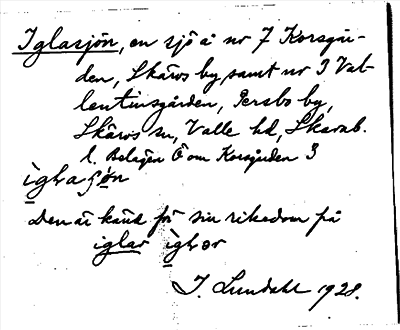 Iglasjön, en sjö å nr 7 Korsgår-
den, Skärvs by, samt nr 3 Val-
lentinsgården, Persbo by,
Skärvs sn, Valle hd, Skarab.
l. Belägen Ö om Korsgården 3
ìgɩvaʃön
Den är känd för sin rikedom på
iglar ìgɩvər
J. Lundahl 1928.